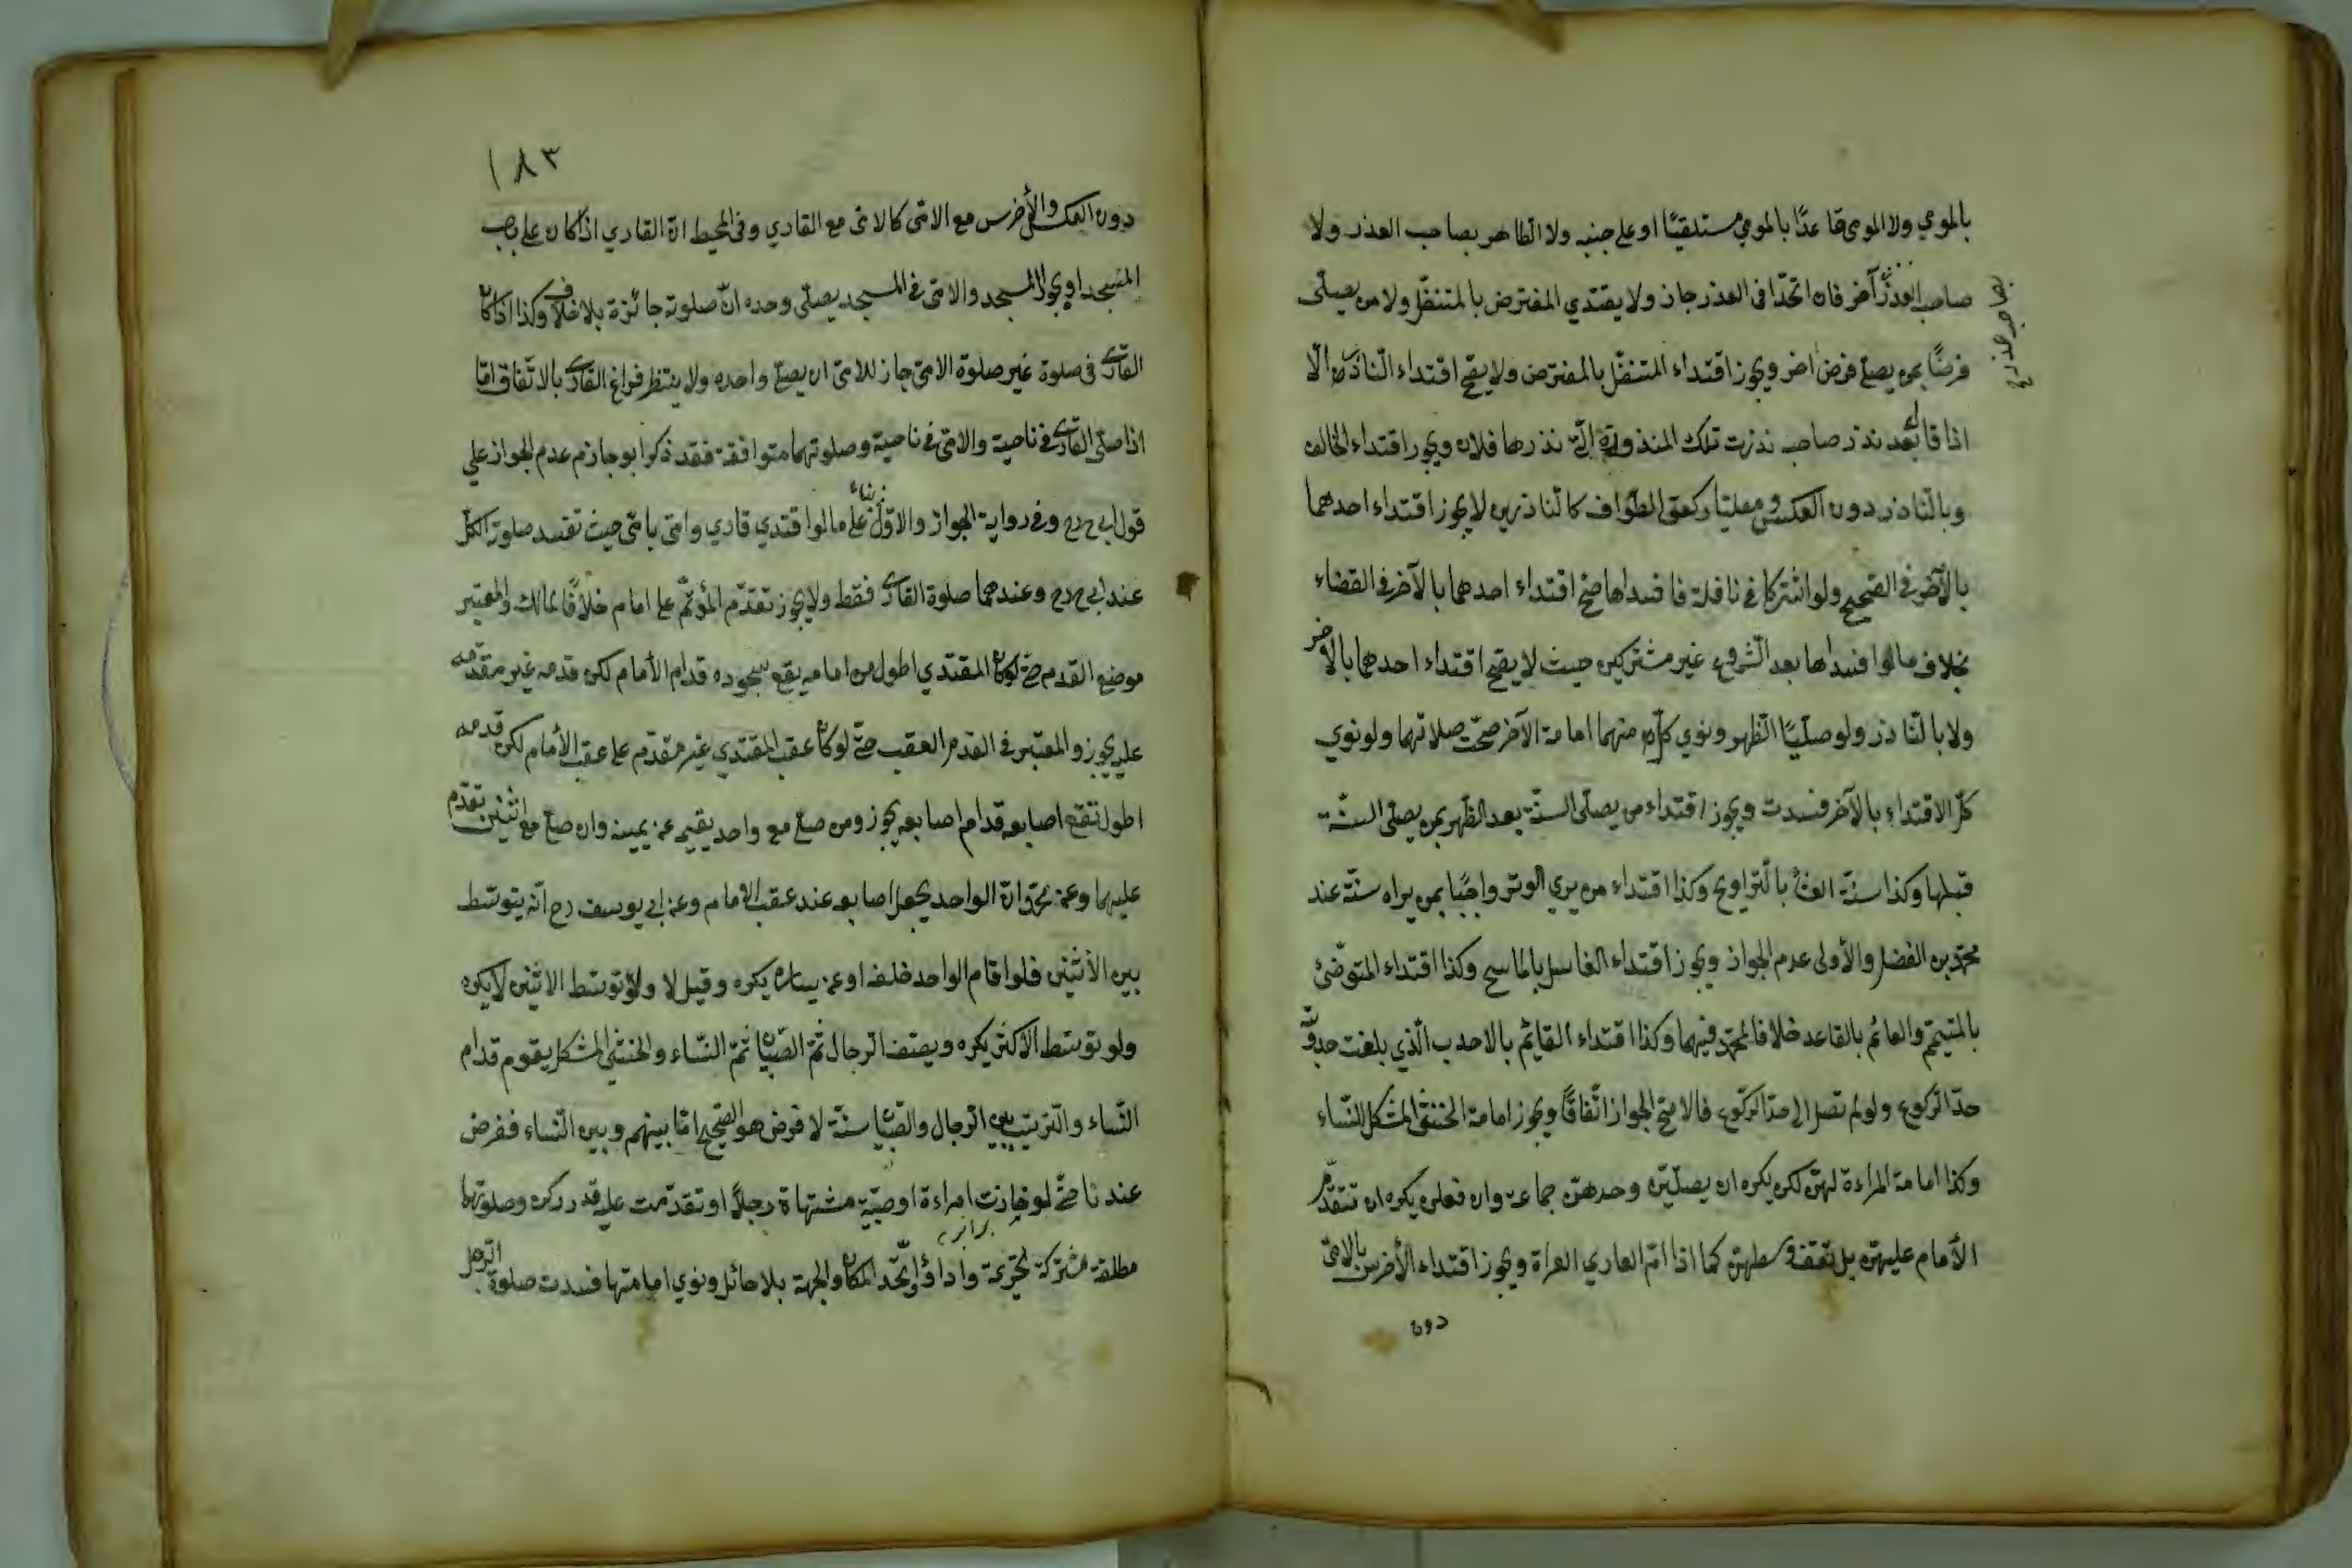 بالمومي ولا المومي قاعدًا بالمومي مستلقيًا او على جنبه ولا الطاهر بصاحب العذر ولا
صاحب العذر آخر فان اتحدا في العذر جاز ولا يقتدي المفترض بالمتنفل ولا من يصلى
فرضًا بمن يصلي فرض اخر ويجوز اقتداء المتنفل بالمفترض ولا يصح اقتداء الناذر الّا
اذا قال بعد نذر صاحب نذرت تلك المنذورة التى نذرها فلان ويجوز اقتداء الحالف
وبالناذر دون العكس ومصليا ركعتى الطواف كالناذرين لا يجوز اقتداء احدهما
بالآخر في الصحيح ولو اشتركا في نافلة فافسداها صح اقتداء احدهما بالآخر في القضاء
بخلاف مالوا فسداها بعد الشروع غير مشتركين حيث لا يصح اقتداء احدهما بالاخر
ولا بالناذر ولو صليا الظهر ونوي كل منهما امامة الآخر صحت صلاتهما ولو نوي
كلّ الاقتداء بالآخر فسدت ويجوز اقتداء من يصلى السنّة بعد الظهر بمن يصلى السنّة
قبلها وكذا سنة العشاء بالتراويح وكذا اقتداء من يري الوتر واجبًا بمن يراه سنّة عند
محمد بن الفضل والأولى عدم الجواز ويجوز اقتداء الغاسل بالماسح وكذا اقتداء المتوضئ
بالمتيمم والقائم بالقاعد خلافا لمحمد فيهما وكذا اقتداء القايم بالاحدب الّذي بلغت حدبته
حدّ الركوع ولو لم تصل الى حدّ الركوع فالاصح الجواز اتّفاقًا ويجوز امامة الخنثى المشكل للنّساء
وكذا امامة المراءة لهنّ لكن يكره ان يصلّين وحدهنّ جماعة وان فعلن يكره ان تتقدّم
الأمام عليهنّ بل تقف وسطهنّ كما اذا امّ العاري العراة ويجوز اقتداء الأخرس بالامّى
دون
١٨٣
دون العكس والأخرس مع الامّى كالامّى مع القاري وفى المحيط انّ القاري اذا كان على باب
المسجد او بجوار المسجد والامّى في المسجد يصلّى وحده انّ صلوته جائزة بلا خلاف وكذا اذا كان
القارى في صلوة غير صلوة الامّى جاز للامّى ان يصلي واحده ولا ينتظر فراغ القارى بالاتّفاق امّا
اذا صلى القارى في ناحية والامّى في ناحية وصلوتهما متوافقة فقد ذكر ابو حازم عدم الجواز على
قول ابى ح رح وفى رواية الجواز والاوّل بناء على مالوا قتدي قاري وامّى بامّى حيث تفسد صلوة الكل
عند ابى ح رح وعندهما صلوة القارى فقط ولا يجوز تقدّم المؤتمّ على امام خلافًا لمالك والمعتبر
موضع القدم حتى لو كان المقتدي اطول من امامه يقع سجوده قدام الأمام لكن قدمه غير مقدّمه
عليه يجوز والمعتبر في القدم العقب حتّى لو كان عقب المقتدي غير مقدّم على عقب الأمام لكن قدمه
اطول تقع اصابعه قدام اصابعه يجوز ومن صلي مع واحد يقيمه عن يمينه وان صلي مع اثنين تقدّم
عليهما وعن محمد انّ الواحد يجعل اصابعه عند عقب الامام وعن ابى يوسف رح انّه يتوسّط
بين الأثنين فلوا قام الواحد خلفه او عن يساره يكره وقيل لا ولو توسّط الاثنين لا يكره
ولو توسّط الاكثر يكره ويصفّ الرجال ثمّ الصّبيان ثمّ النّساء والخنثى المشكل يقوم قدام
النّساء والترتيب بين الرجال والصّبيان سنّة لا فرض هو الصّحيح امّا بينهم وبين النّساء ففرض
عندنا حتّى لو حاذت امراءة او صبيّة مشتهاة رجلًا او تقدّمت عليه قدر ركن وصلوتهما
برابر
مطلقة مشتركة تحريمة واداء واتّحد المكان والجهة بلا حائل ونوي امامتها فسدت صلوة الرجل